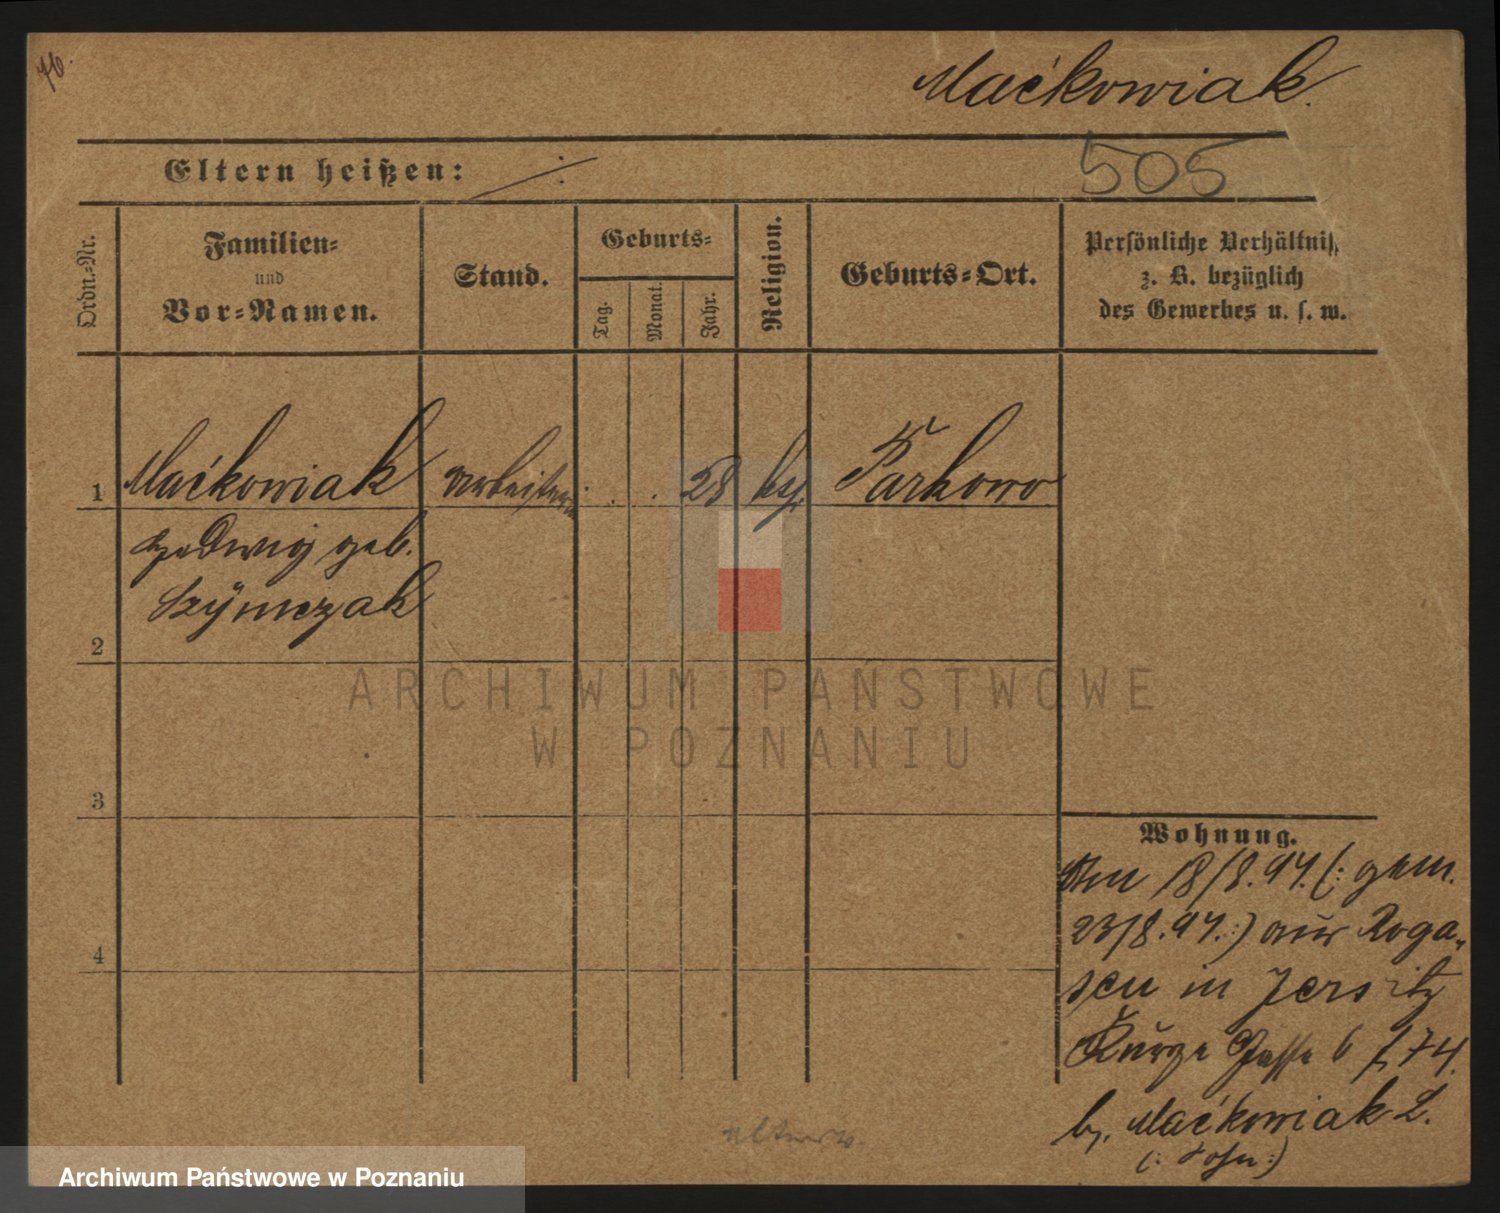 Maćkowiak.
Eltern heißen:
505
Ordn.-Nr.
Familien-
und
Vor-Namen.
Stand.
Geburts-
Tag.
Monat.
Jahr.
Religion.
Geburts-Ort.
Persönliche Verhältniss
z. B. bezüglich
des Gewerbes u. s. w.
1
Maćkowiak
Arbeiterin
28
Parkowo
Hedwig geb.
Szÿmczak
2
3
4
Wohnung.
18/8.94. (: gem.
23/8.94. :) aus Roga-
sen in Jersitz
Kurze Gasse 6
b. Maćkowiak L.
(: Sohn :)
ARCHIWUM PAŃSTWOWE
W POZNANIU
Archiwum Państwowe w Poznaniu